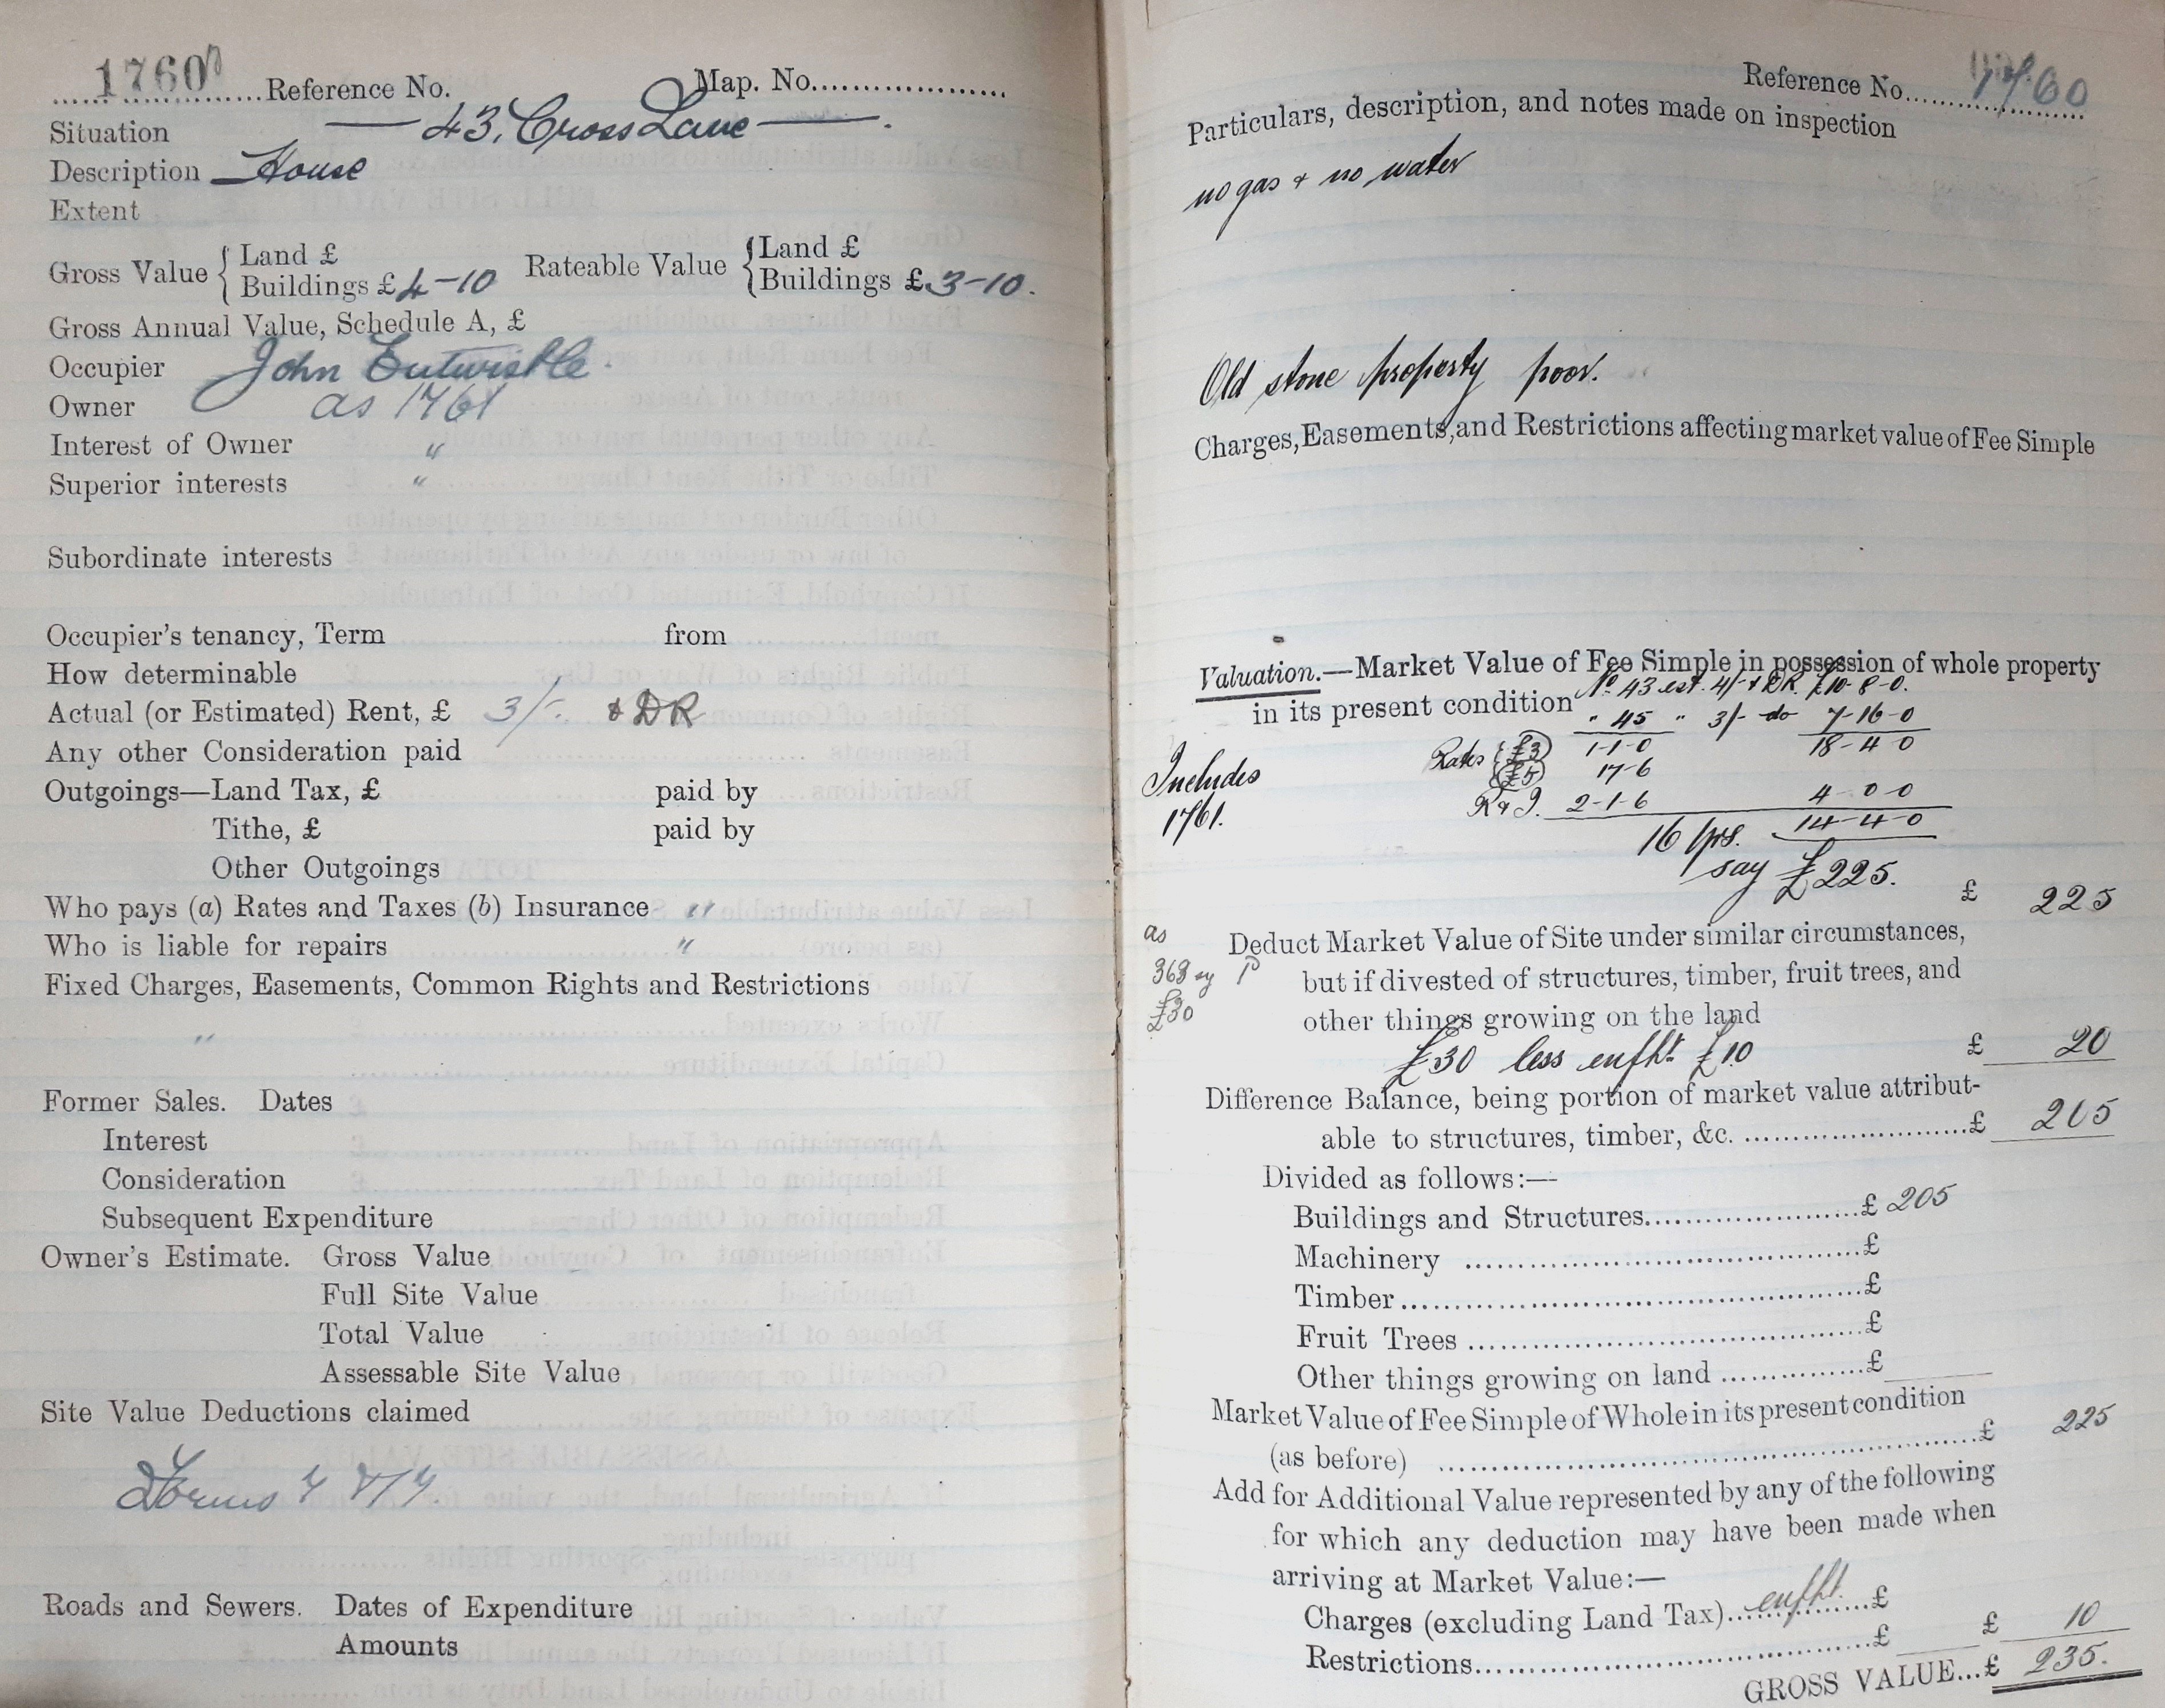 1760 Reference No. Map. No.
Situation — 43, Cross Lane —.
Description House
Extent
Gross Value { Land £
Buildings £ 4-10
Rateable Value { Land £
Buildings £ 3-10.
Gross Annual Value, Schedule A, £
Occupier John Entwistle.
Owner as 1761
Interest of Owner "
Superior interests "
Subordinate interests
Occupier's tenancy, Term from
How determinable
Actual (or Estimated) Rent, £ 3/-. & DR
Any other Consideration paid
Outgoings—Land Tax, £ paid by
Tithe, £ paid by
Other Outgoings
Who pays (a) Rates and Taxes (b) Insurance "
Who is liable for repairs "
Fixed Charges, Easements, Common Rights and Restrictions
"
Former Sales. Dates
Interest
Consideration
Subsequent Expenditure
Owner's Estimate. Gross Value
Full Site Value
Total Value
Assessable Site Value
Site Value Deductions claimed
Forms 4
Roads and Sewers. Dates of Expenditure
Amounts
Reference No. 1760
Particulars, description, and notes made on inspection
no gas & no water
Old stone property poor.
Charges, Easements, and Restrictions affecting market value of Fee Simple
Valuation.—Market Value of Fee Simple in possession of whole property
in its present condition No. 43 est. 4/- & DR. £10-8-0.
" 45 " 3/- do 7-16-0
Rates { £3 1-1-0 18-4-0
£5 17-6
R & I. 2-1-6 4-0-0
Includes
1761.
16 yrs. 14-4-0
say £225.
£ 225
as
368 sy
£30
Deduct Market Value of Site under similar circumstances,
but if divested of structures, timber, fruit trees, and
other things growing on the land
£30 less enfht £10 £ 20
Difference Balance, being portion of market value attribut-
able to structures, timber, &c. £ 205
Divided as follows:—
Buildings and Structures £ 205
Machinery £
Timber £
Fruit Trees £
Other things growing on land £
Market Value of Fee Simple of Whole in its present condition
(as before) £ 225
Add for Additional Value represented by any of the following
for which any deduction may have been made when
arriving at Market Value:—
Charges (excluding Land Tax) enfht. £
Restrictions £ £ 10
GROSS VALUE...£ 235.